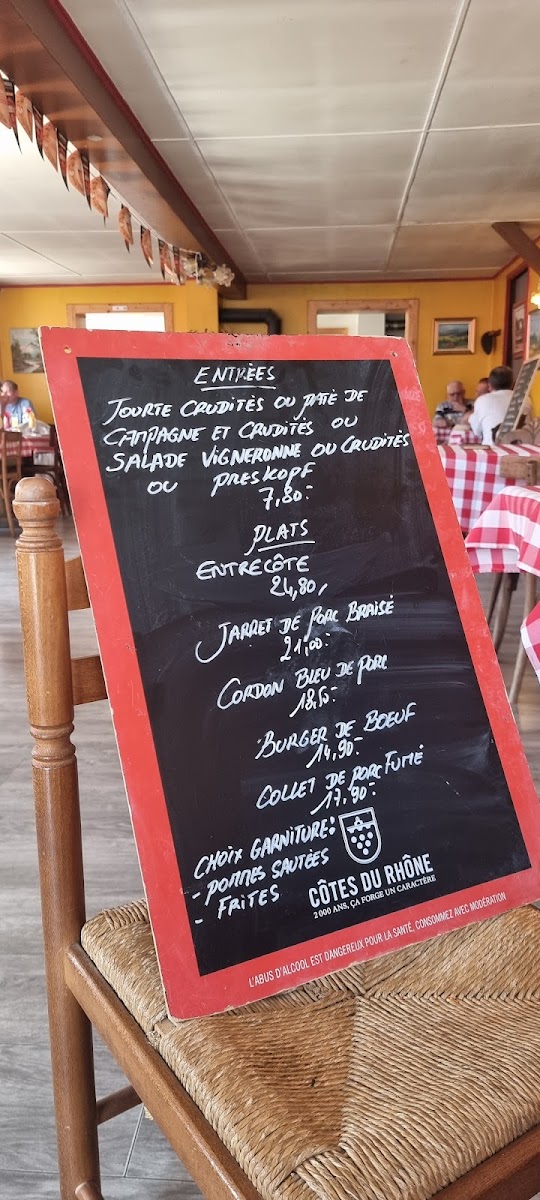 ENTRÈES
TOURTE CRUDITÉS OU PATÉ DE
CAMPAGNE ET CRUDITÉS OU
SALADE VIGNERONNE OU CRUDITÉS
OU PRESKOPF
7,80.-
PLATS
ENTRECÔTE
24,80,
JARRET DE PORC BRAISÉ
21,00.-
CORDON BLEU DE PORC
18,50.-
BURGER DE BOEUF
14,90.-
COLLET DE PORC FUMÉ
17,90.-
CHOIX GARNITURE:
- POMMES SAUTÉES
- FRITES
CÔTES DU RHÔNE
2 000 ANS, ÇA FORGE UN CARACTÈRE
L'ABUS D'ALCOOL EST DANGEREUX POUR LA SANTÉ, CONSOMMEZ AVEC MODÉRATION